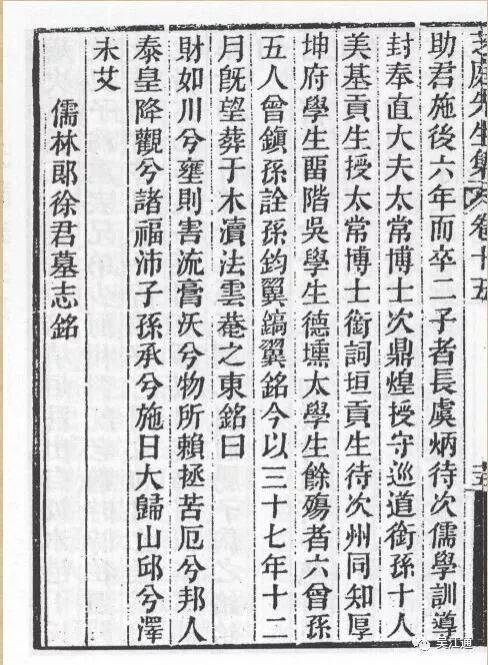 助君施後六年而卒二子者長虞炳待次儒學訓導
封奉直大夫太常博士次鼎煌授守巡道銜孫十人
美基貢生授太常博士銜詞垣貢生待次州同知厚
坤府學生畱階吳學生德壎太學生餘殤者六曾孫
五人曾鎮孫詮孫鈞翼鎬翼銘今以三十七年十二
月旣望葬于木瀆法雲菴之東銘曰
財如川兮壅則害流膏沃兮物所賴拯苦厄兮邦人
泰皇降觀兮諸福沛子孫承兮施日大歸山邱兮澤
未艾
儒林郎徐君墓志銘
芝庭先生集 卷十五
吴江通